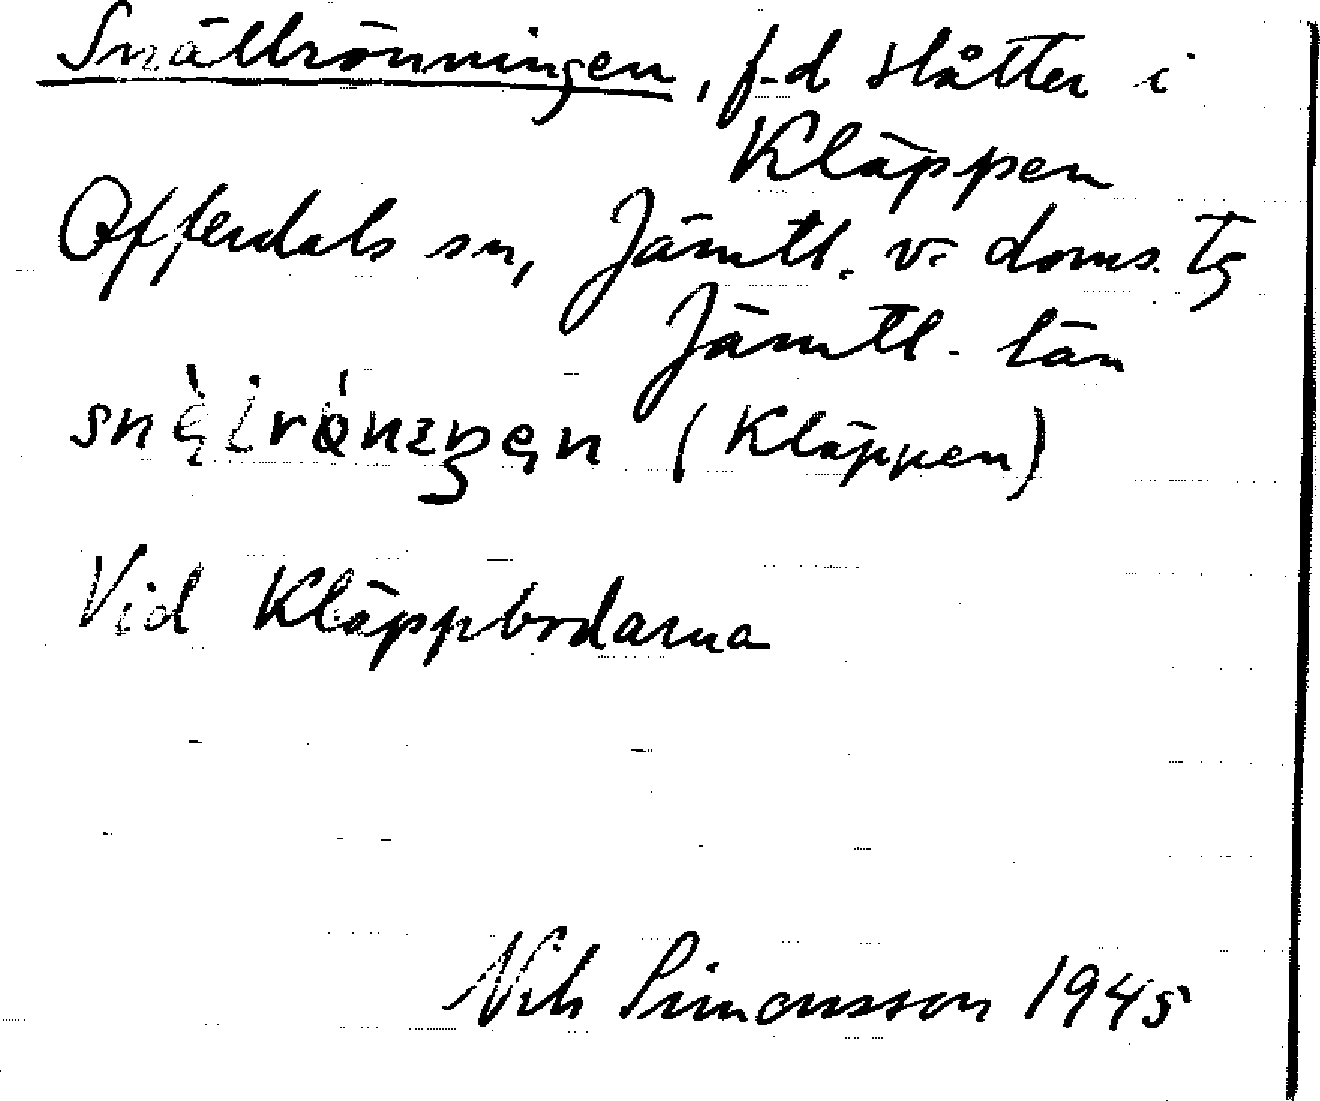 Snällrönningen, f.d slåtter i
Kläppen
Offerdals sn, Jämtl. v. doms. tg
Jämtl. län
(Kläppen)
Vid Kläppbodarna
Nils Simonsson 1945